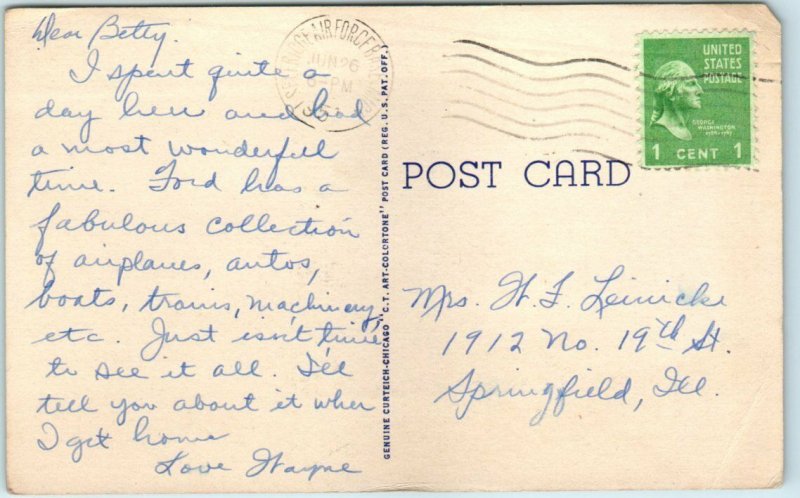 Dear Betty.
I spent quite a
day here and had
a most wonderful
time. Ford has a
fabulous collection
of airplanes, autos,
boats, trains, machinery,
etc. Just isn't time
to see it all. I'll
tell you about it when
I get home
Love Wayne
GENUINE CURTEICH-CHICAGO "C.T. ART-COLORTONE" POST CARD (REG. U.S. PAT. OFF.)
AIR FORCE
JUN 26
PM
1951
UNITED
STATES
POSTAGE
GEORGE
WASHINGTON
1 CENT 1
POST CARD
Mrs. W. F. Leinicke
1912 No. 19th St.
Springfield, Ill.